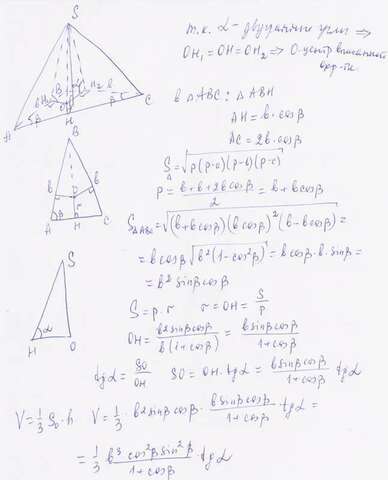 т.к. α - двугранные углы ⇒
OH₁ = OH = OH₂ ⇒ O - центр вписанной
окр-ти.
в △ABC: △ABH
AH = b · cosβ
AC = 2b · cosβ
S△ = √(p(p-a)(p-b)(p-c))
P = (b + b + 2b cosβ)/2 = b + b cosβ
S△ABC = √((b + b cosβ)(b cosβ)²(b - b cosβ)) =
= b cosβ √(b²(1 - cos²β)) = b cosβ · b · sinβ =
= b² sinβ cosβ
S = p · r r = OH = S/P
OH = b² sinβ cosβ / b(1 + cosβ) = b sinβ cosβ / (1 + cosβ)
tgα = SO/OH SO = OH · tgα = b sinβ cosβ / (1 + cosβ) tgα
V = 1/3 S₀ · h V = 1/3 · b² sinβ cosβ · b sinβ cosβ / (1 + cosβ) tgα =
= 1/3 b³ cos²β sin²β / (1 + cosβ) · tgα
S
A
H
C
β
B
b
b
A
β
H
C
r
S
α
H
O